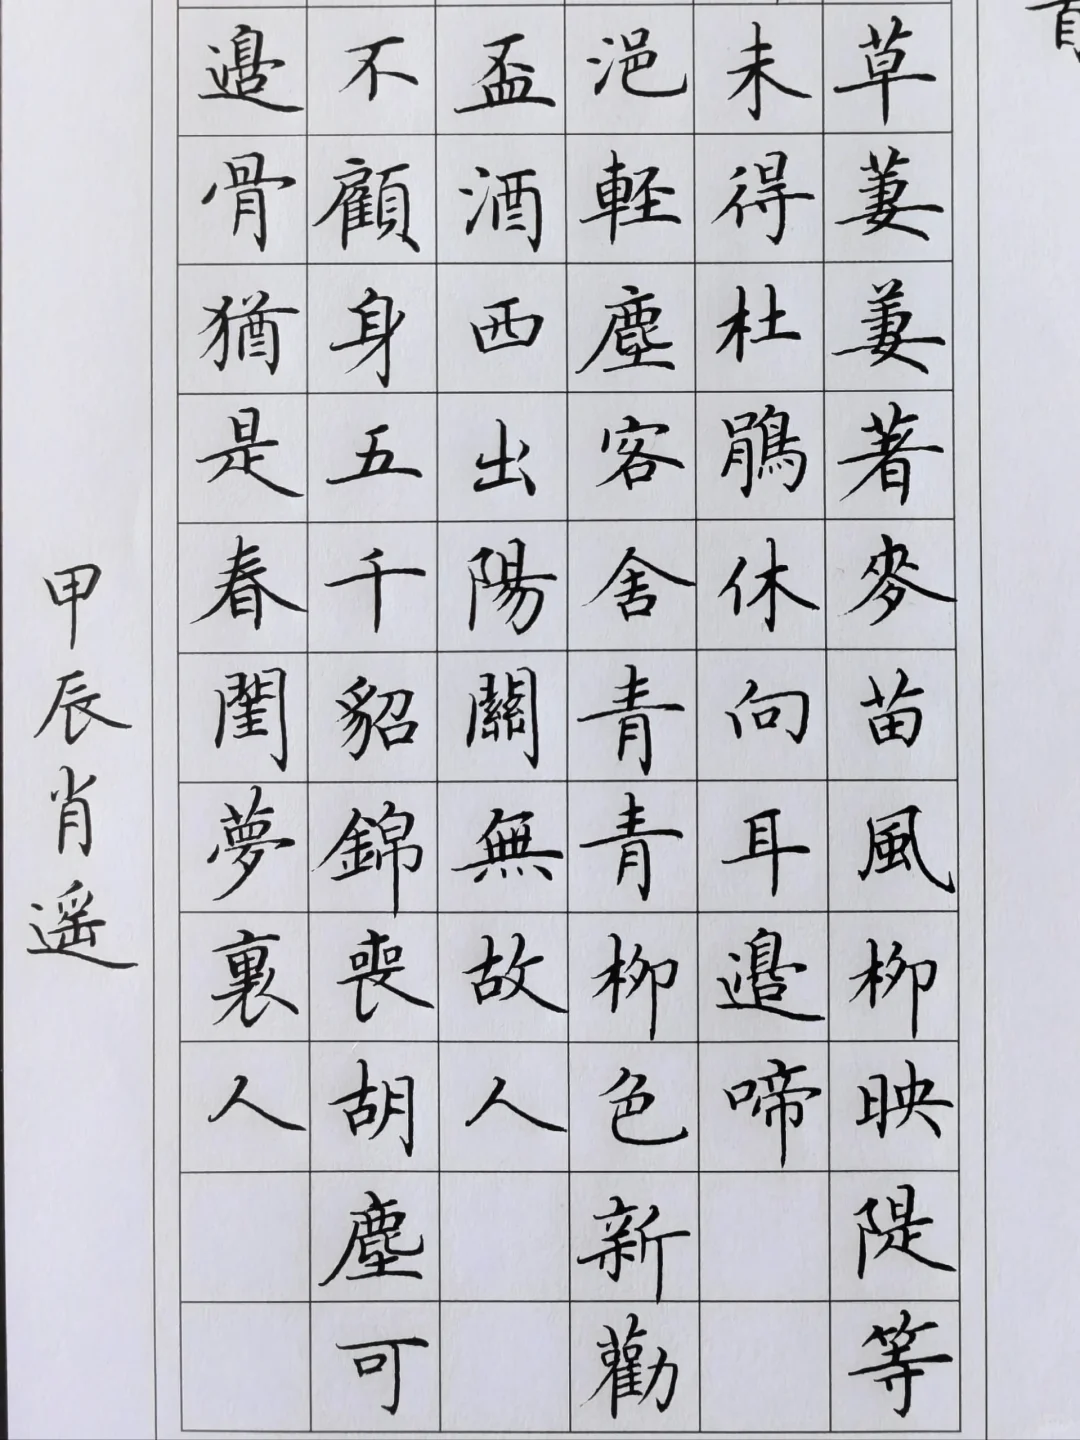 草萋萋著麥苗風柳映隄等
未得杜鵑休向耳邊啼
浥輕塵客舍青青柳色新勸
盃酒西出陽關無故人
不顧身五千貂錦喪胡塵可
邊骨猶是春閨夢裏人
甲辰肖遥